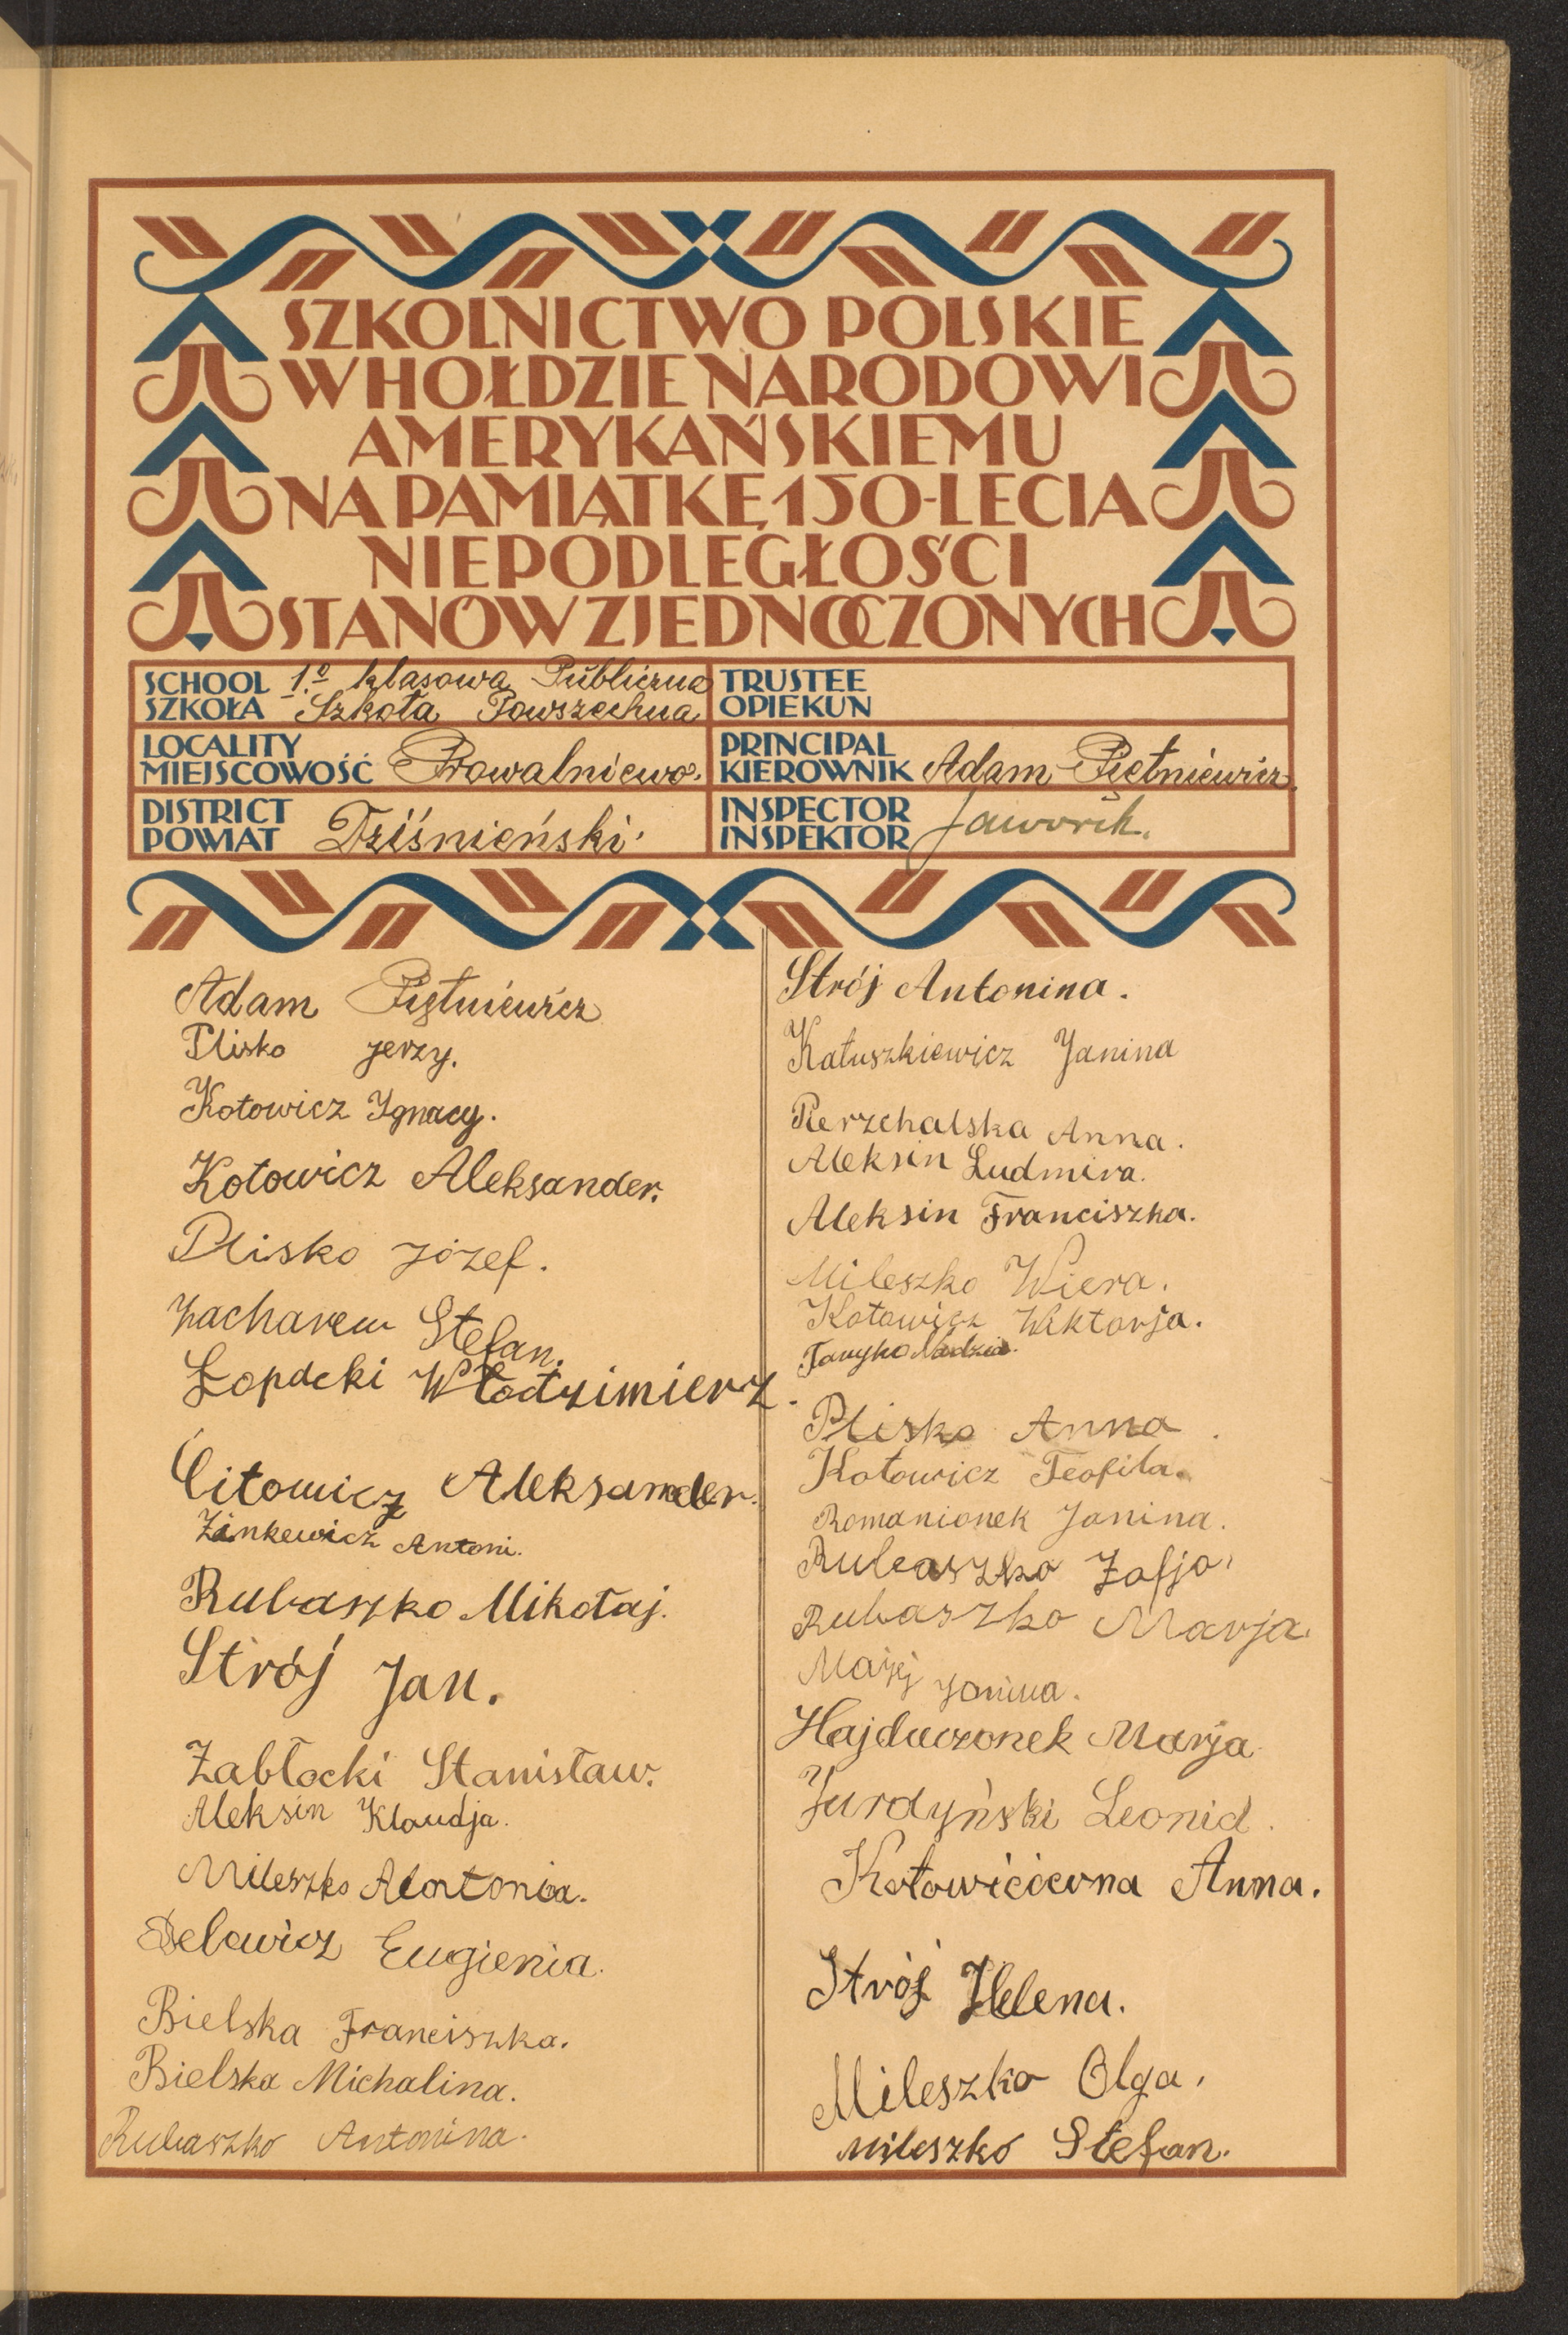 SZKOLNICTWO POLSKIE
W HOŁDZIE NARODOWI
AMERYKAŃSKIEMU
NA PAMIĄTKĘ 150-LECIA
NIEPODLEGŁOŚCI
STANÓW ZJEDNOCZONYCH
SCHOOL
SZKOŁA
1.º klasowa Publiczna
Szkoła Powszechna
TRUSTEE
OPIEKUN
LOCALITY
MIEJSCOWOŚĆ Prowalniewo.
PRINCIPAL
KIEROWNIK Adam Piętniewicz.
DISTRICT
POWIAT Dziśnieński.
INSPECTOR
INSPEKTOR Jaworik.
Adam Piętniewicz
Plisko Jerzy.
Kotowicz Ignacy.
Kotowicz Aleksander.
Plisko Józef.
Zacharew Stefan.
Łopacki Włodzimierz.
Citowicz Aleksander.
Zinkewicz Antoni.
Rubaszko Mikołaj.
Strój Jan.
Zabłocki Stanisław.
Aleksin Klaudja.
Mileszko
Eugienia.
Bielska Franciszka.
Bielska Michalina.
Rubaszko Antonina.
Strój Antonina.
Katuszkiewicz Janina
Pierzchalska Anna.
Aleksin Ludmira.
Aleksin Franciszka.
Mileszko Wiera.
Kotowicz Wiktorja.
Nadzia.
Plisko Anna.
Kotowicz Teofila.
Romanionek Janina.
Rubaszko Zofja.
Rubaszko Marja.
Janina.
Hajduczonek Marja.
Jurdyński Leonid.
Kotowiczówna Anna.
Strój Helena.
Mileszko Olga.
Mileszko Stefan.